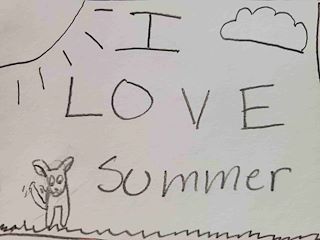 I
LOVE
Summer